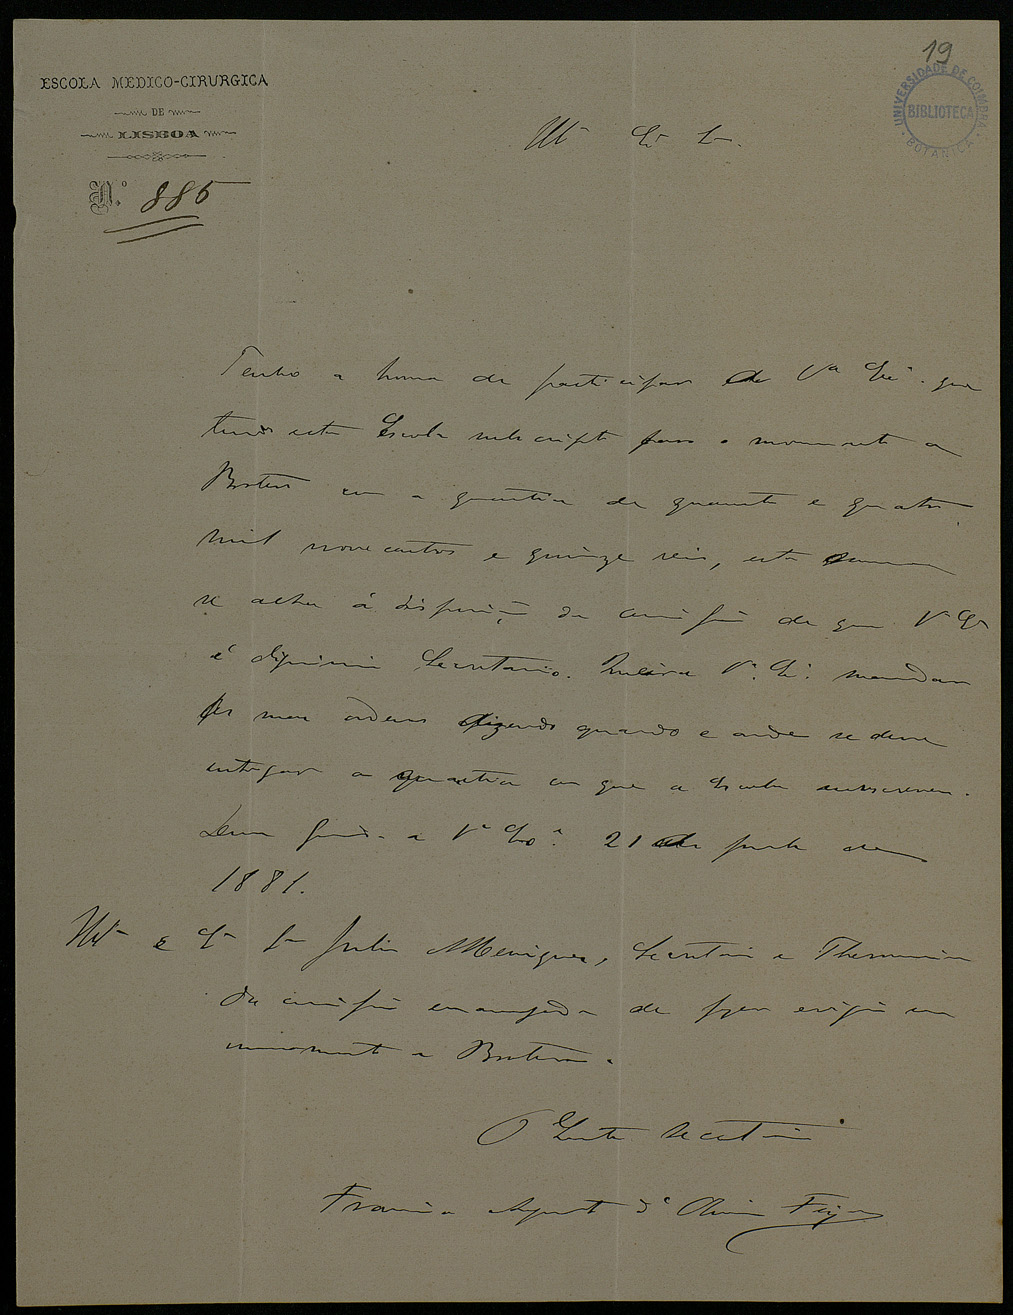 19
UNIVERSIDADE DE COIMBRA
BIBLIOTECA
BOTANICA
ESCOLA MEDICO-CIRURGICA
DE
LISBOA
N.º 885
Illmo Exmo Sr.
Tenho a honra de participar a Va Exa. que
tendo esta Escola subscripto para o monumento a
Brotero com a quantia de quarenta e quatro
mil novecentos e quinze reis, esta somma
se acha á disposição da commissão de que Va Exa
é dignissimo Secretario. Queira Va. Exa. mandar
as suas ordens dizendo quando e onde se deve
entregar a quantia com que a Escola subscreveu.
Deus Guarde a Va Exa. 21 de de
1881.
Illmo e Exmo Sr Julio Henriques, Secretario e Thesoureiro
da commissão encarregada de fazer erigir um
monumento a Brotero.
O Lente secretario
Francisco Augusto d'Oliveira Feijão